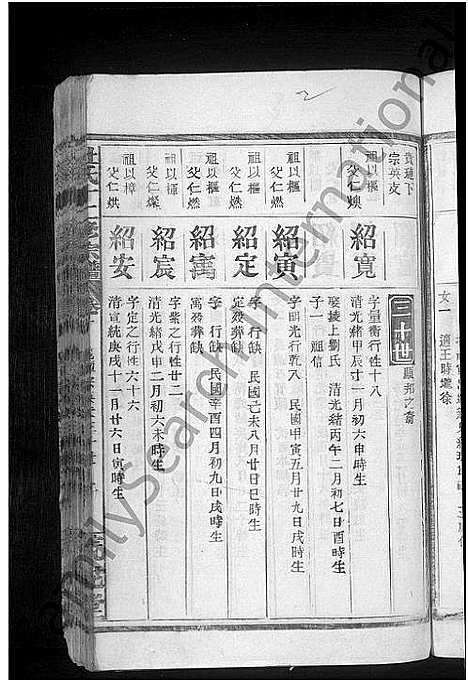 2
女一 適王時境徐
貴建下
宗英支
三十世
祖以樞
父仁煥
紹寬
字量衡行性十八
清光緒甲辰十一月初六申時生
娶棱上劉氏 清光緒丙午二月初七日酉時生
子一 廻信
祖以樞
父仁燃
紹寅
字明光行乾八 民國甲寅五月廿九日戌時生
祖以樞
父仁燃
紹定
字 行缺 民國己未八月廿日巳時生
定歿葬缺
祖以樞
父仁燃
紹寓
字 行缺 民國辛酉四月初九日戌時生
寓歿葬缺
祖以樞
父仁燦
紹宸
字紫之行性廿二
清光緒戊申二月初六未時生
祖以樟
父仁烘
紹安
字定之行性六十六
清宣統庚戌十一月廿六日寅時生
FamilySearch International